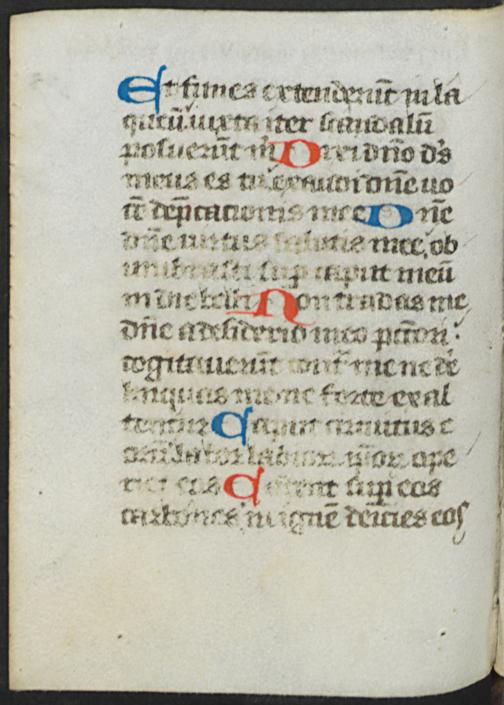 Et funes extenderūt in la
queū: iuxta iter scandalū
posuerūt m̄ Dixi dn̄o d's
meus es tu exaudi dn̄e uo
cē dep̄cationis mee Dn̄e
dn̄e uirtus salutis mee, ob
umbrasti sup caput meū
in die belli Non tradas me
dn̄e a desiderio meo pctori:
cogitauerūt cont̄ me ne de
linquas me ne forte exal
tentur Caput circuitus e
orū labor labiorū ip̄orū ope
riet eos Cadent sup eos
carbones in ignē deicies eos